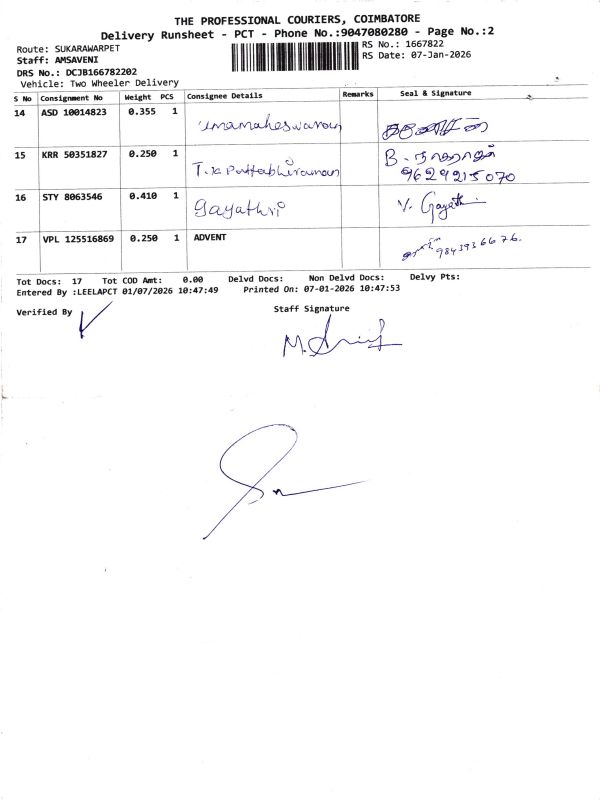 THE PROFESSIONAL COURIERS, COIMBATORE
Delivery Runsheet - PCT - Phone No.:9047080280 - Page No.:2
Route: SUKARAWARPET
RS No.: 1667822
Staff: AMSAVENI
RS Date: 07-Jan-2026
DRS No.: DCJB166782202
Vehicle: Two Wheeler Delivery
S No Consignment No Weight PCS Consignee Details Remarks Seal & Signature
14 ASD 10014823 0.355 1 umamaheswaran
15 KRR 50351827 0.250 1 T.K Pattabhiraman B. நாகராஜன்
9629215070
16 STY 8063546 0.410 1 gayathri V. Gayathri
17 VPL 125516869 0.250 1 ADVENT 9843936676.
Tot Docs: 17 Tot COD Amt: 0.00 Delvd Docs: Non Delvd Docs: Delvy Pts:
Entered By :LEELAPCT 01/07/2026 10:47:49 Printed On: 07-01-2026 10:47:53
Verified By
Staff Signature